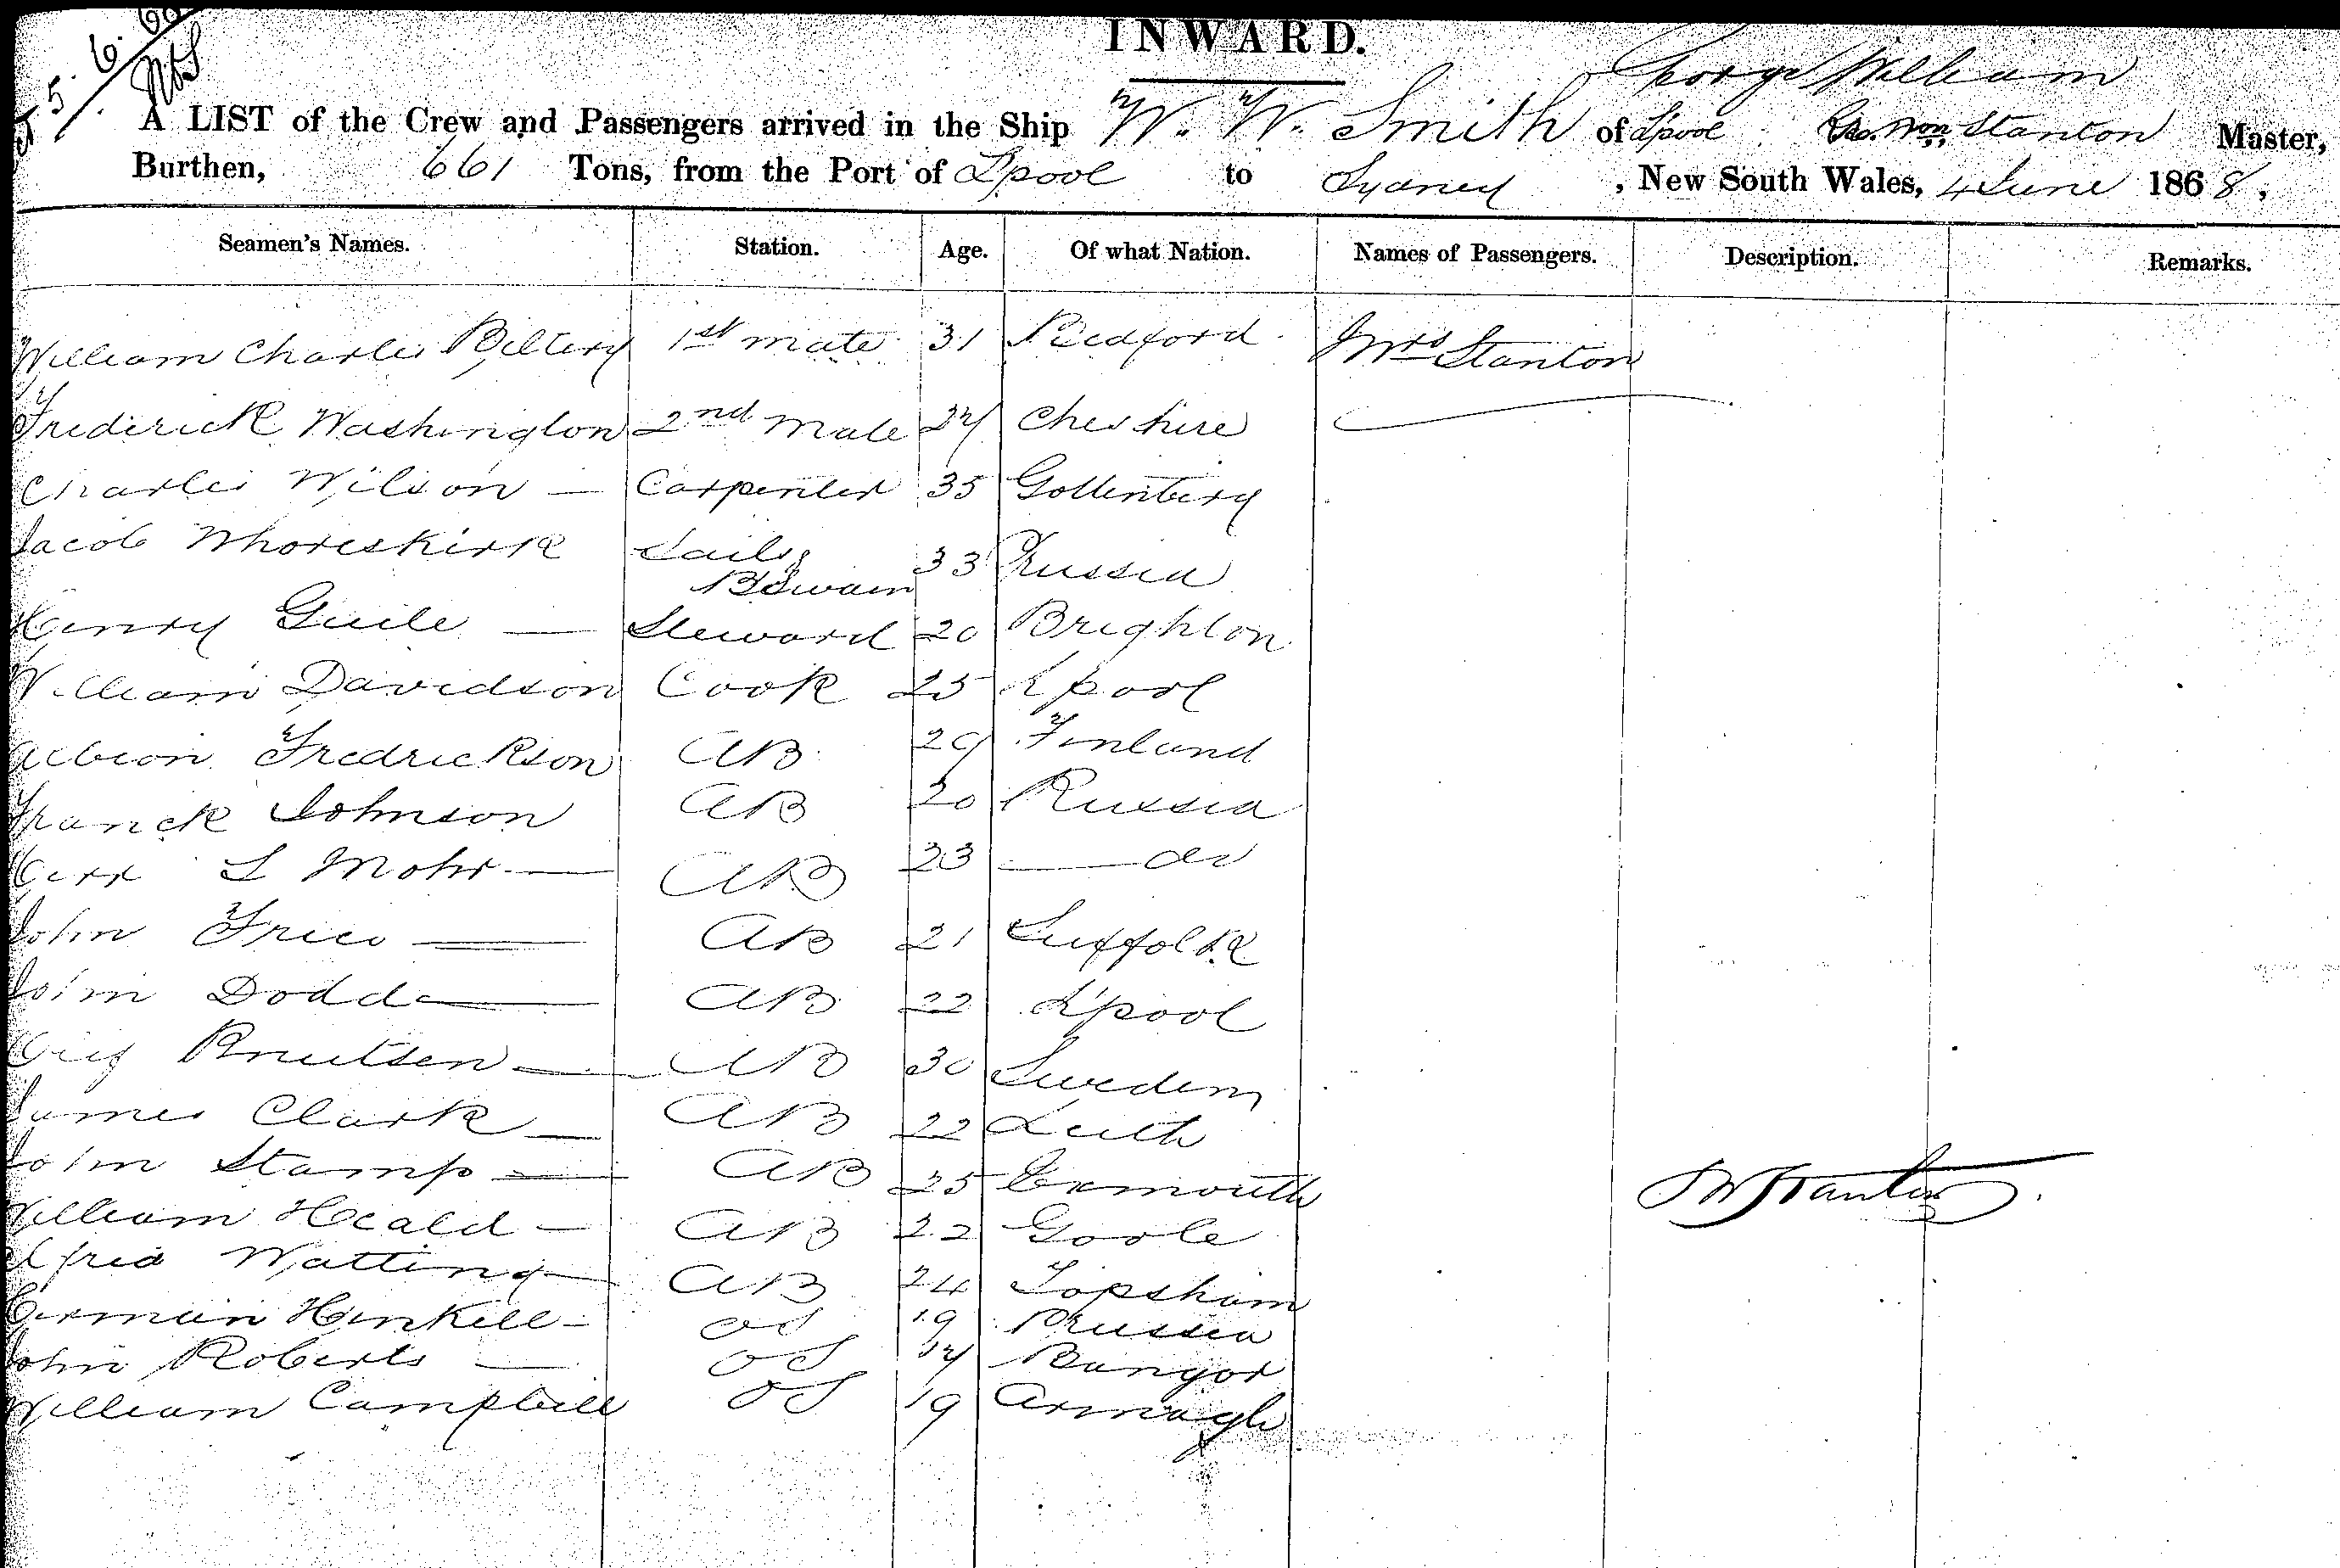 INWARD.
George William
A LIST of the Crew and Passengers arrived in the Ship W. W. Smith of Lpool Geo. Wm. Stanton Master,
Burthen, 661 Tons, from the Port of Lpool to Sydney, New South Wales, 4 June 1868,
Seamen's Names. Station. Age. Of what Nation. Names of Passengers. Description. Remarks.
William Charles 1st mate 31 Bedford Mrs Stanton
Frederick Washington 2nd Mate Cheshire
Charles Wilson — Carpenter 35 Gottenberg
Jacob Whoreskirk Sails & 33
BSwain
Henry Guile — Steward 20 Brighton
William Davidson Cook 25 Lpool
Albion Fredrickson AB 29 Finland
Franck Johnson AB 20 Russia
L Mohr — AB 23 — do
John AB 21 Suffolk
John Dodd — AB 22 L'pool
Knutsen — AB 30 Sweden
James Clark — AB 22 Leith
John Stamp — AB 25 Exmouth
William Heald — AB 22 Goole
Alfred Watting — AB 24 Topsham
Herman Henkell — OS 19 Prussia
John Roberts — OS Bangor
William Campbell OS 19 Armagh
GW Stanton